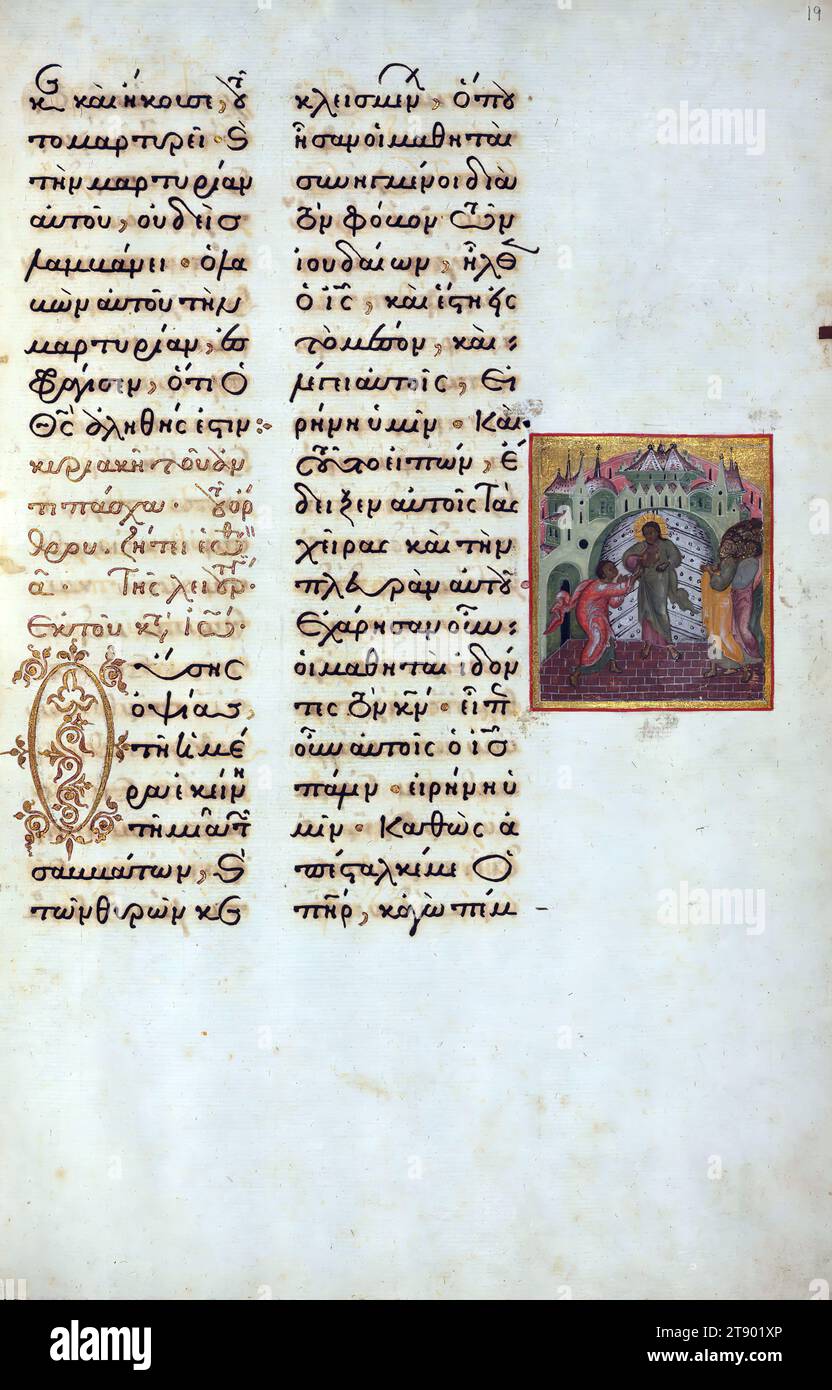 19
κε καὶ ἤκουσε, τοῦ
το μαρτυρεῖ · καὶ
τὴν μαρτυρίαν
αὐτοῦ, οὐδεὶς
λαμβάνει · ὁ λα
βὼν αὐτοῦ τὴν
μαρτυρίαν, ἐσ
φράγισεν, ὅτι ὁ
Θς ἀληθής ἐστιν :
κυριακὴ τοῦ ἀν
τιπάσχα ·
θρου. ζήτει ἑωθ
α. Τῆς λειτουρ.
Ἐκ τοῦ κτ ἰω.
Οὔσης
ὀψίας
τῇ ἡμέ
ρᾳ ἐκείνῃ
τῇ μιᾷ τῶν
σαββάτων, καὶ
τῶν θυρῶν κε
κλεισμένων, ὅπου
ἦσαν οἱ μαθηταὶ
συνηγμένοι διὰ
τὸν φόβον τῶν
ἰουδαίων, ἦλθεν
ὁ ις, καὶ ἔστη εἰς
τὸ μέσον, καὶ
λέγει αὐτοῖς, Εἰ
ρήνη ὑμῖν · Καὶ
τοῦτο εἰπὼν, ἔ
δειξεν αὐτοῖς τὰς
χεῖρας καὶ τὴν
πλευρὰν αὐτοῦ
Ἐχάρησαν οὖν
οἱ μαθηταὶ ἰδόν
τες τὸν κν · εἶπεν
οὖν αὐτοῖς ὁ ις
πάλιν · εἰρήνη ὑ
μῖν · Καθὼς ἀ
πέσταλκέ με ὁ
πηρ, κἀγὼ πέμ
alamy
alamy
alamy
alamy
Image ID: 2T901XP
www.alamy.com